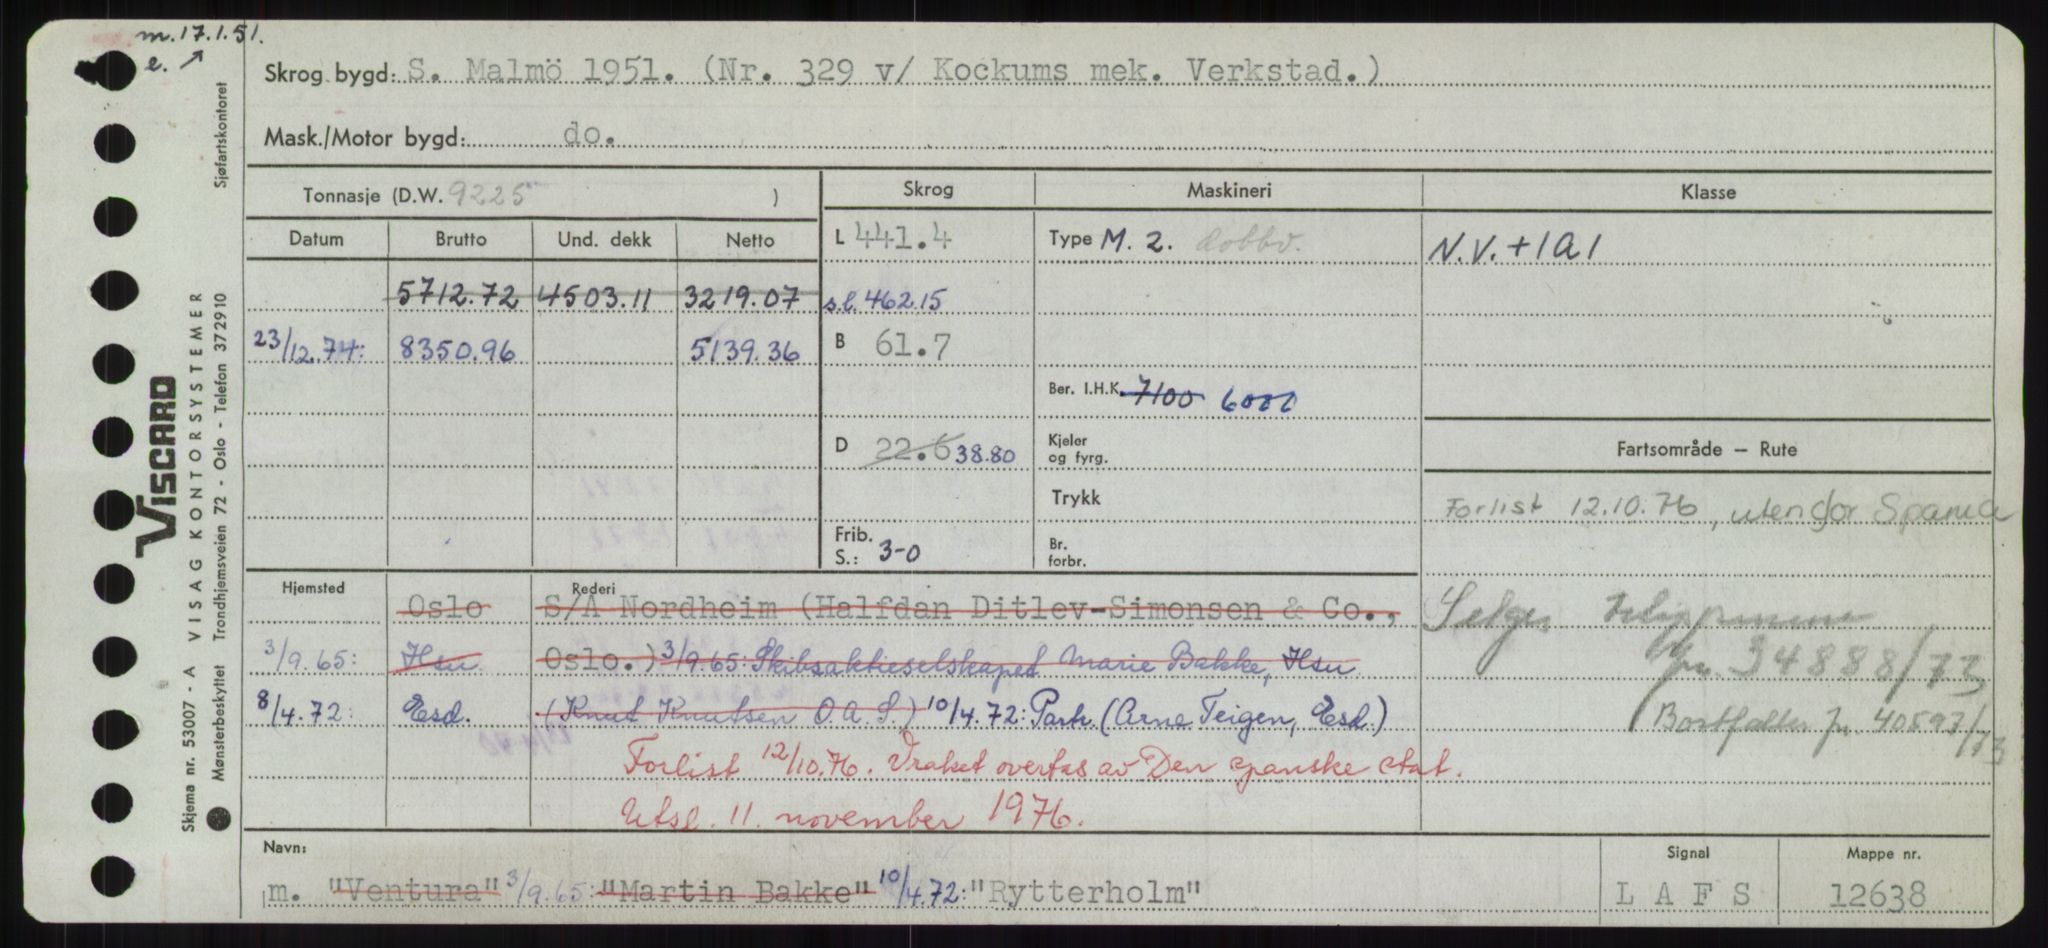 m. 17.1.51.
e. ↗
Skrog bygd: S. Malmö 1951. (Nr. 329 v/ Kockums mek. Verkstad.)
Mask./Motor bygd: do.
Tonnasje (D.W. 9225 )
Skrog
Maskineri
Klasse
Datum Brutto Und. dekk Netto
L 441.4
Type M. 2. dobbv.
N.V. + 1A1
5712.72 4503.11 3219.07
s.l. 462.15
23/12.74: 8350.96 5139.36
B 61.7
Ber. I.H.K. 7100 6000
D 22.6 38.80
Kjeler
og fyrg.
Fartsområde – Rute
Trykk
Forlist 12.10.76, utenfor Spania
Frib.
S.: 3-0
Br.
forbr.
Hjemsted
Rederi
Oslo S/A Nordheim (Halfdan Ditlev-Simonsen & Co.,
3/9.65: Hsu Oslo.) 3/9.65: Skibsaktieselskapet Marie Bakke, Hsu
8/4.72: Esd. (Knut Knutsen O.A.S.) 10/4.72: Partr. (Arne Teigen, Esd.)
Selges
jnr. 34888/73
Bortfaller jnr. 40597/73
Forlist 12/10.76. Vraket overtas av Den spanske stat.
Utsl. 11. november 1976.
Navn:
m. "Ventura" 3/9.65: "Martin Bakke" 10/4.72: "Rytterholm"
Signal
L A F S
Mappe nr.
12638
VISCARD
VISAG KONTORSYSTEMER
Skjema nr. 53007 - A
Mønsterbeskyttet Trondhjemsveien 72 - Oslo - Telefon 372910
Sjøfartskontoret